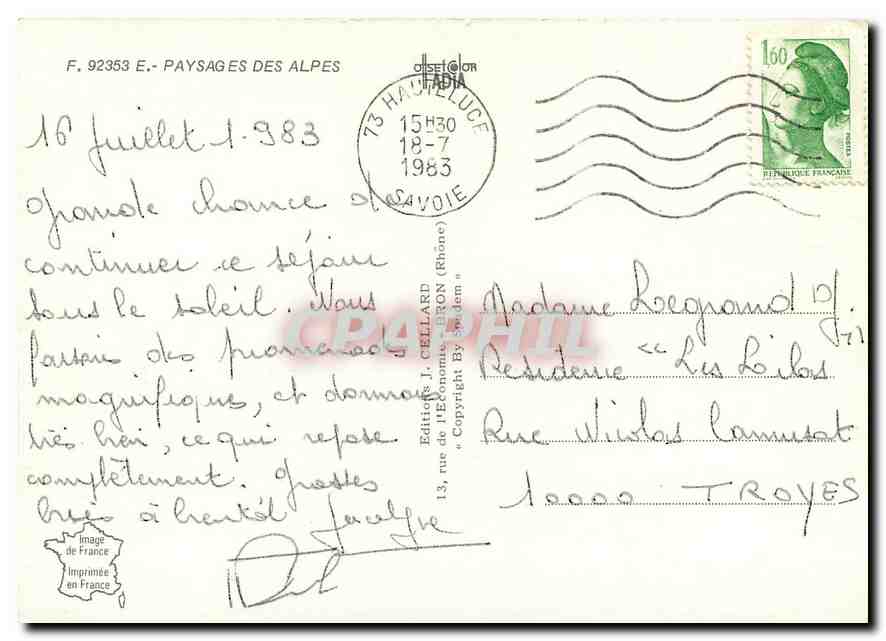 F. 92353 E.- PAYSAGES DES ALPES
offset color
IADIA
73 HAUTELUCE
15H30
18-7
1983
SAVOIE
1,60
POSTES
REPUBLIQUE FRANÇAISE
16 Juillet 1.983
Grande chance de
continuer ce séjour
sous le soleil. Nous
faisons des promenades
magnifiques, et dormons
très bien, ce qui repose
complètement. Grosses
bises à bientôt Jacolyne
Editions J. CELLARD
13, rue de l'Economie - BRON (Rhône)
" Copyright By Spadem "
Madame Legrand D.
Residence " Les Lilas "
Rue Nicolas Camusat
10000 TROYES
Image
de France
Imprimée
en France
CPAPHIL